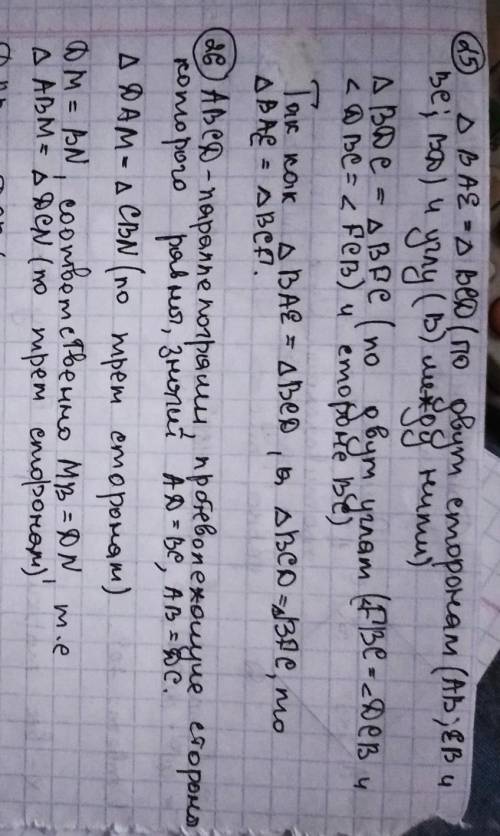 25) Δ BAE = Δ BCD (по двум сторонам (AB; EB и
BC; BD) и углу (B) между ними)
Δ BDC = Δ BFC (по двум углам (FBC = ∠DCB и
∠DBC = ∠FCB) и стороне BC)
Так как Δ BAE = Δ BCD, а Δ BCD = Δ BFC, то
Δ BAE = Δ BCF.
26) ABCD - параллелограмм, противолежащие стороны
которого равны, значит AD = BC, AB = DC.
Δ DAM = Δ CBN (по трем сторонам)
DM = BN, соответственно MB = DN, т.е
Δ ABM = Δ DCN (по трем сторонам)